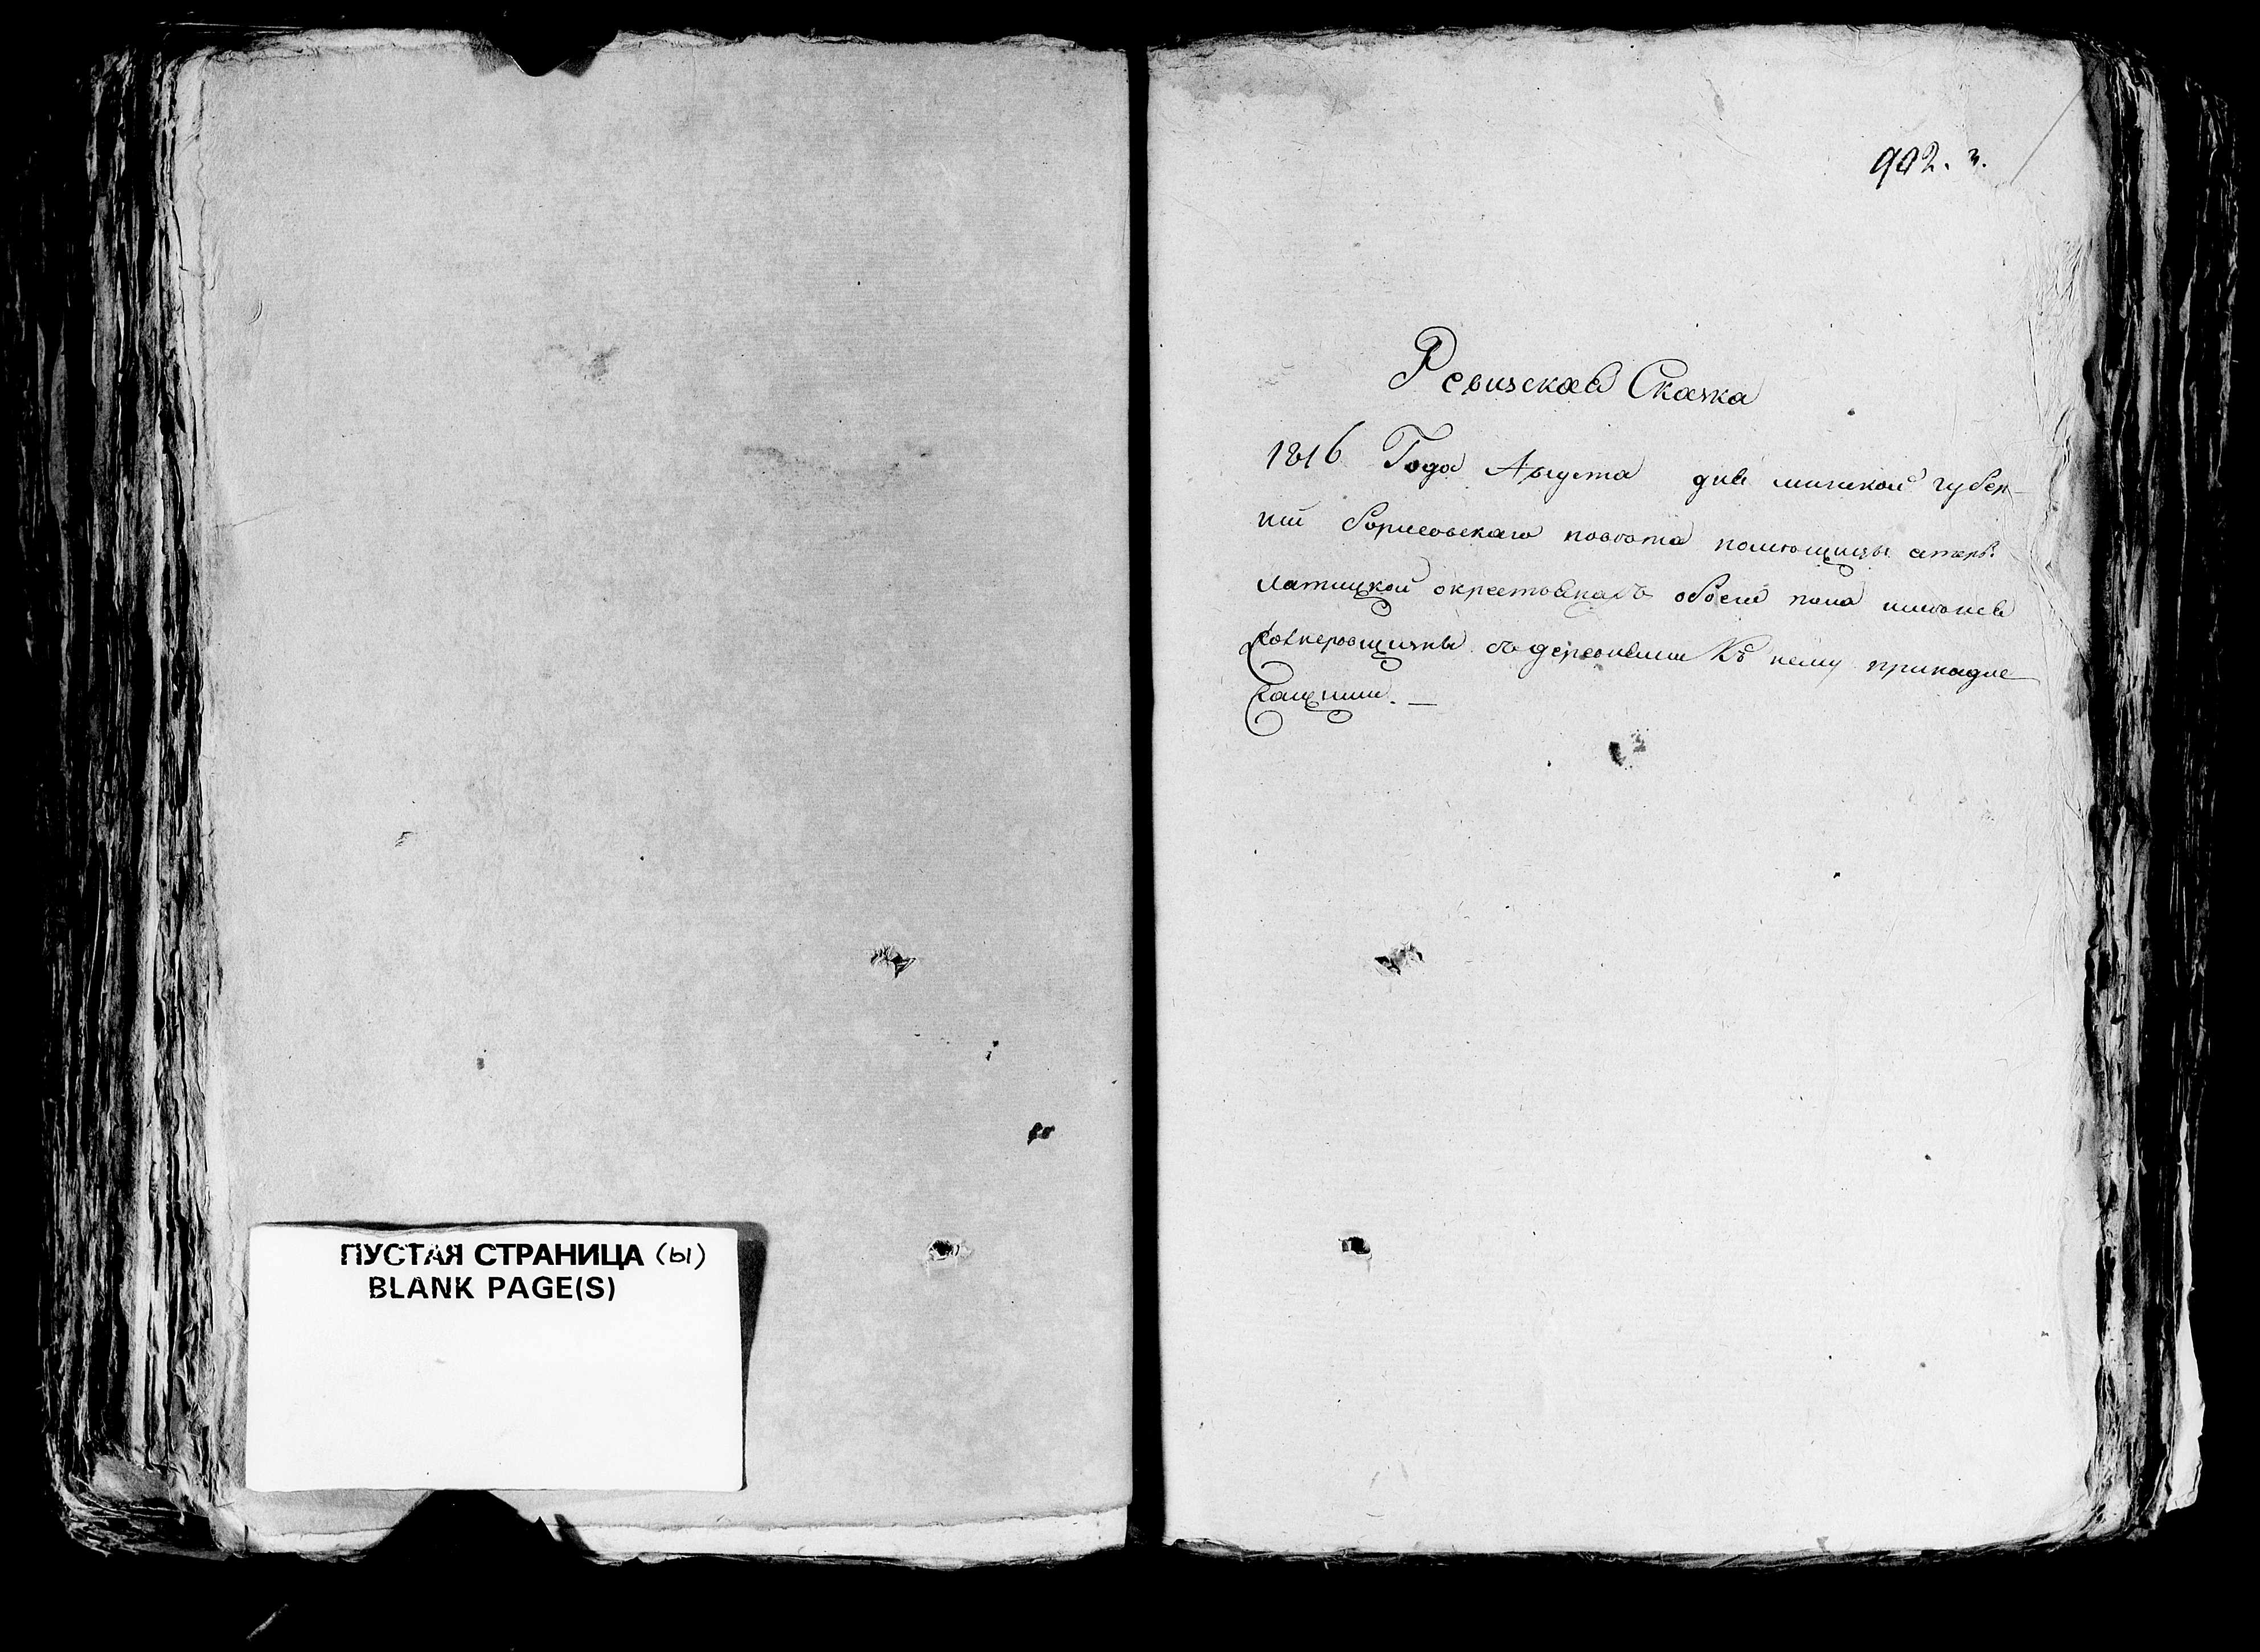 ПУСТАЯ СТРАНИЦА (ы)
BLANK PAGE(S)
902.
Ревизская Сказка
1816 Года Августа дня минской губер-
нии борисовскаго повета помещицы
окрестьянахъ обоего пола имения
съ деревнями Къ нему принадле
жащими. —